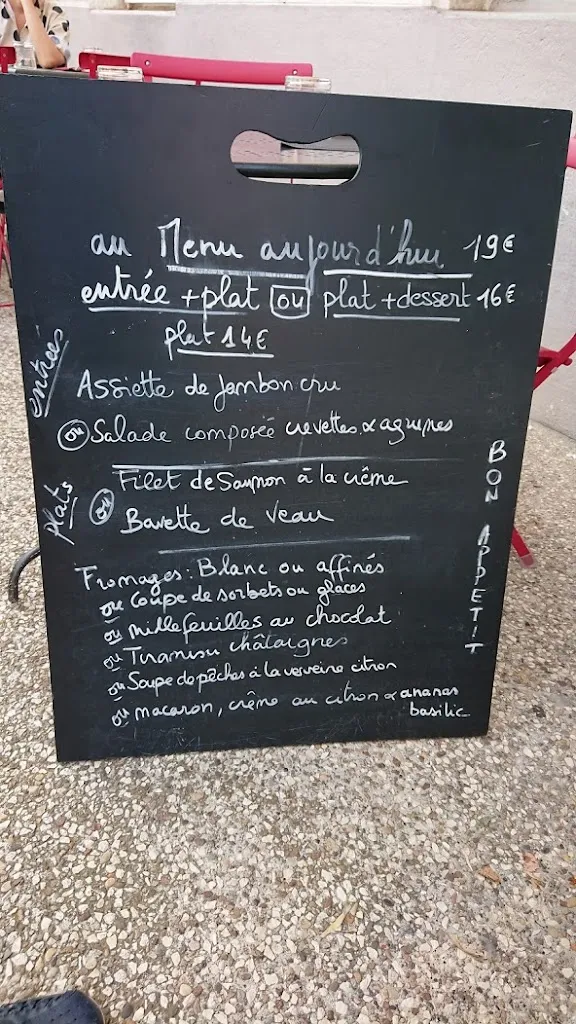 au Menu aujourd'hui 19€
entrée + plat ou plat + dessert 16€
plat 14€
entrées
Assiette de Jambon cru
ou Salade composée crevettes & agrumes
plats
Filet de Saumon à la crème
ou
Bavette de Veau
Fromages: Blanc ou affinés
ou Coupe de sorbets ou glaces
ou Millefeuilles au chocolat
ou Tiramisu châtaignes
ou Soupe de pêches à la verveine citron
ou macaron, crème au citron & ananas
basilic
BON APPETIT